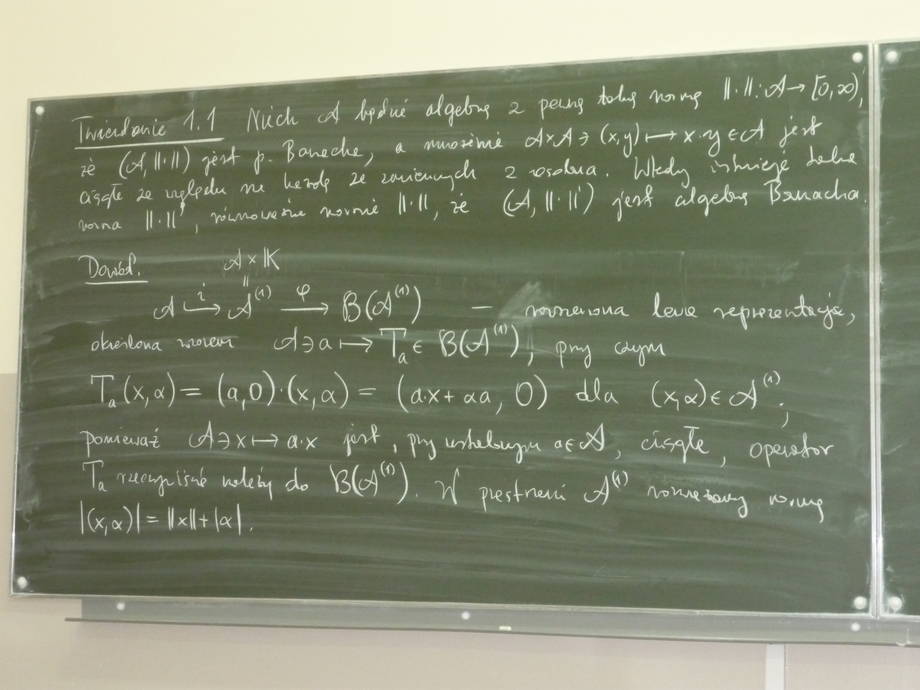 Twierdzenie 1.1 Niech A będzie algebrą z pełną taką normą ‖·‖: A → [0,∞),
że (A, ‖·‖) jest p. Banacha, a mnożenie A×A ∋ (x,y) ⟼ x·y ∈ A jest
ciągłe ze względu na każdą ze zmiennych z osobna. Wtedy istnieje taka
norma ‖·‖', równoważna normie ‖·‖, że (A, ‖·‖') jest algebrą Banacha.
Dowód. A × 𝕂
‖
A ↪ⁱ A⁽¹⁾ —φ→ B(A⁽¹⁾) – lewa reprezentacja,
określona wzorem A ∋ a ⟼ Tₐ ∈ B(A⁽¹⁾), przy czym
Tₐ(x,α) = (a,0)·(x,α) = (a·x + αa, 0) dla (x,α) ∈ A⁽¹⁾;
ponieważ A ∋ x ⟼ a·x jest, przy ustalonym a ∈ A, ciągłe, operator
Tₐ rzeczywiście należy do B(A⁽¹⁾). W przestrzeni A⁽¹⁾ rozważamy normę
|(x,α)| = ‖x‖ + |α|.